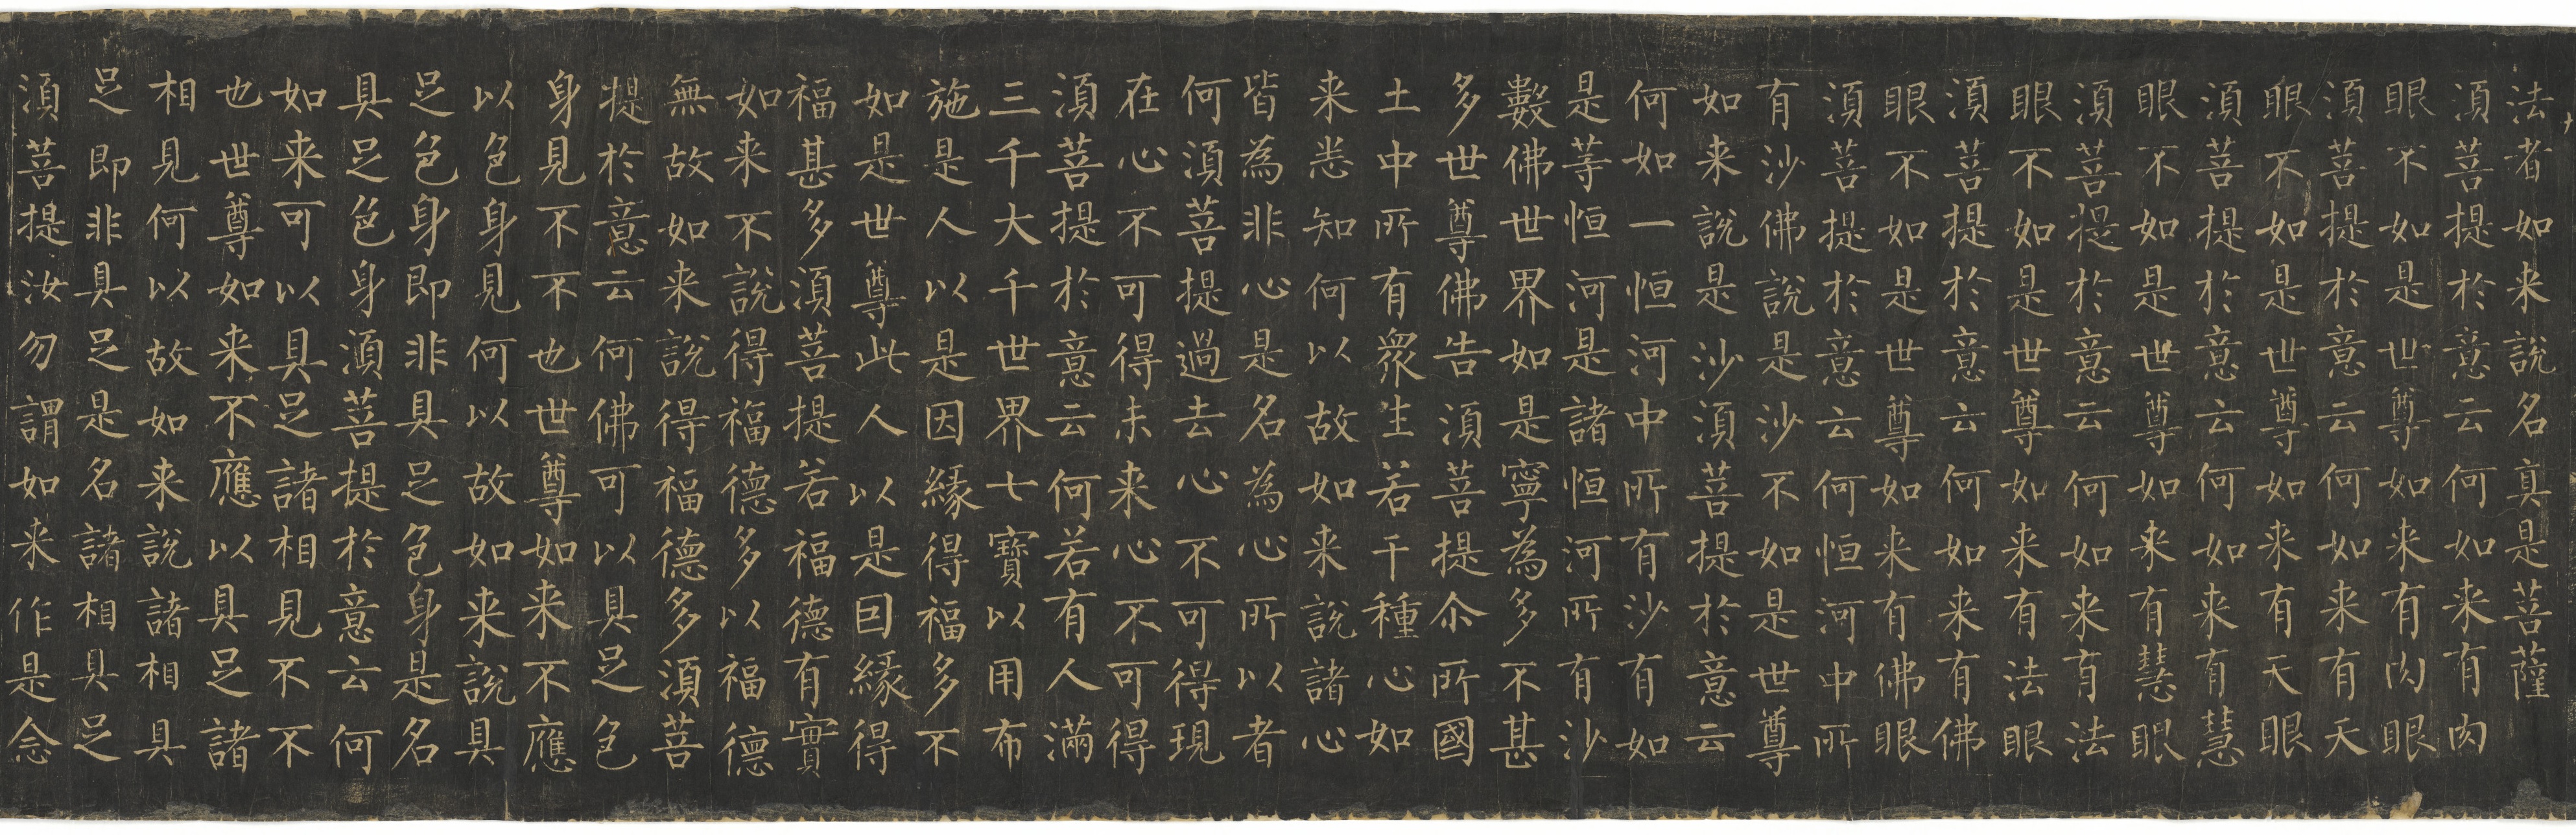 法者如来說名真是菩薩
湏菩提於意云何如来有肉
眼不如是世尊如来有肉眼
湏菩提於意云何如来有天
眼不如是世尊如来有天眼
湏菩提於意云何如来有慧
眼不如是世尊如来有慧眼
湏菩提於意云何如来有法
眼不如是世尊如来有法眼
湏菩提於意云何如来有佛
眼不如是世尊如来有佛眼
湏菩提於意云何恒河中所
有沙佛說是沙不如是世尊
如来說是沙湏菩提於意云
何如一恒河中所有沙有如
是等恒河是諸恒河所有沙
數佛世界如是寧為多不甚
多世尊佛告湏菩提尒所國
土中所有眾生若干種心如
来悉知何以故如来說諸心
皆為非心是名為心所以者
何湏菩提過去心不可得現
在心不可得未来心不可得
湏菩提於意云何若有人滿
三千大千世界七寶以用布
施是人以是因緣得福多不
如是世尊此人以是因緣得
福甚多湏菩提若福德有實
如来不說得福德多以福德
無故如来說得福德多湏菩
提於意云何佛可以具足色
身見不不也世尊如来不應
以色身見何以故如来說具
足色身即非具足色身是名
具足色身湏菩提於意云何
如来可以具足諸相見不不
也世尊如来不應以具足諸
相見何以故如来說諸相具
足即非具足是名諸相具足
湏菩提汝勿謂如来作是念